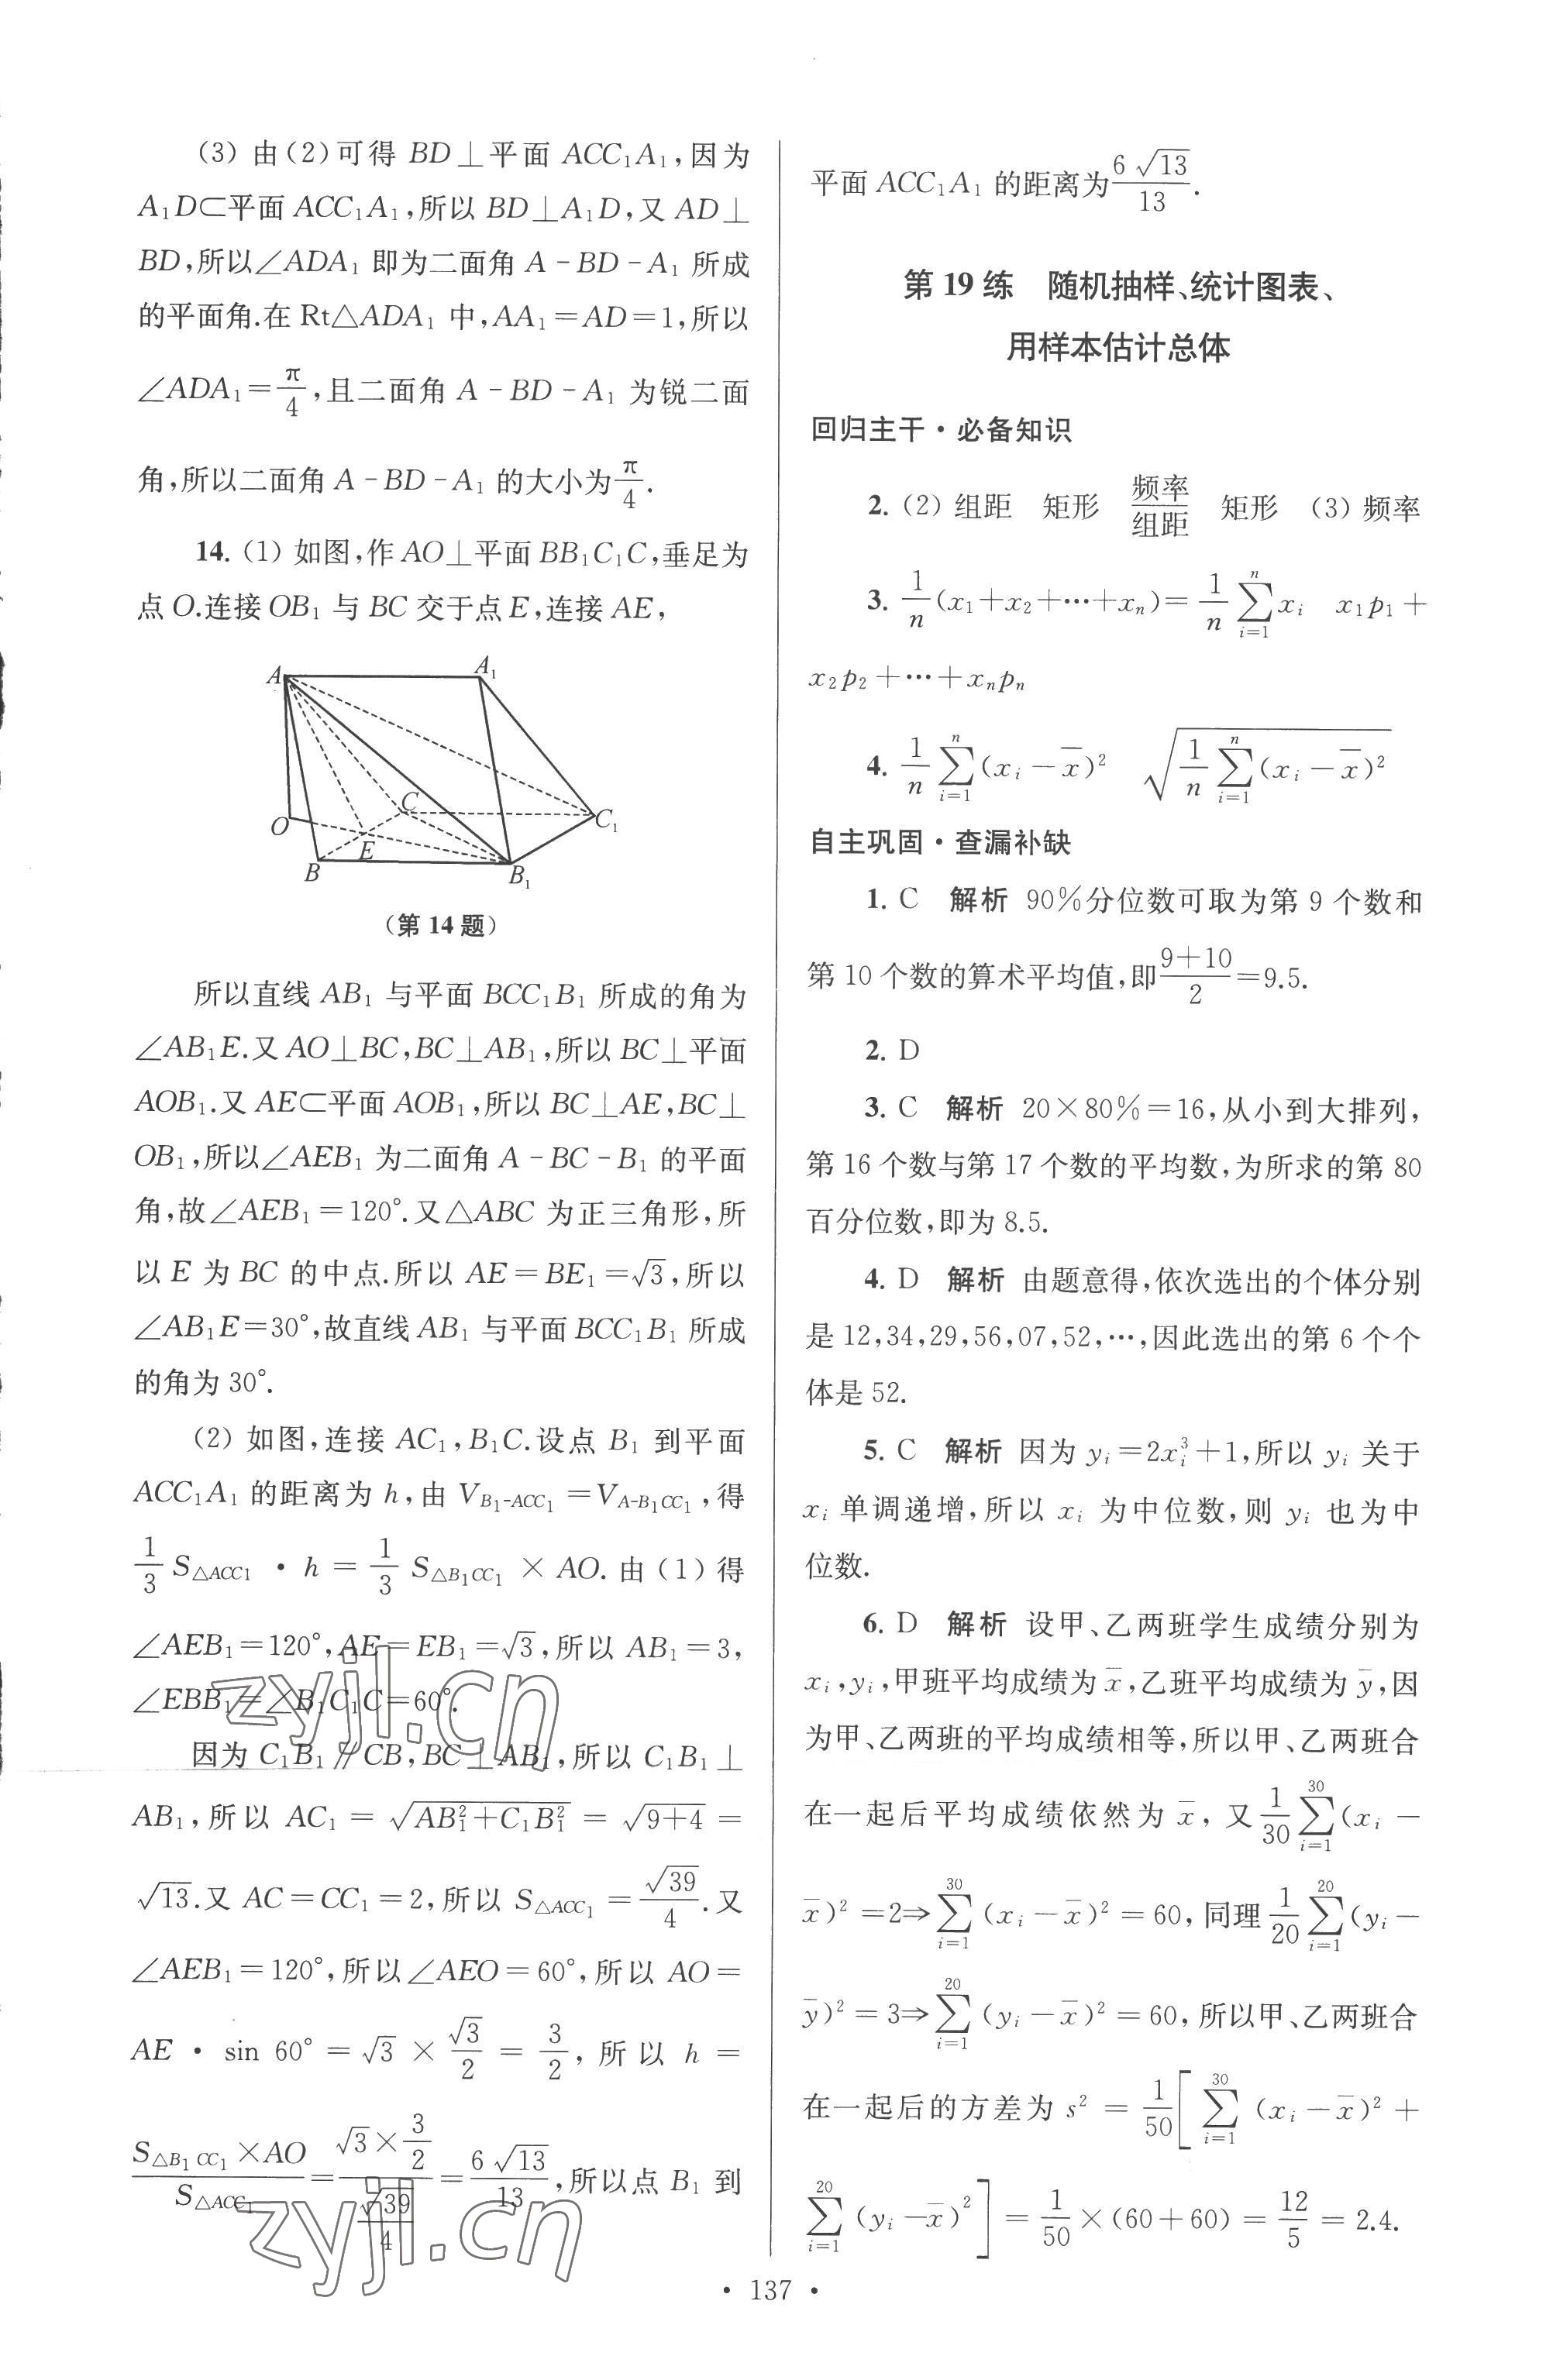 (3) 由(2)可得 BD⊥平面 ACC₁A₁,因为
A₁D⊂平面 ACC₁A₁,所以 BD⊥A₁D,又 AD⊥
BD,所以∠ADA₁ 即为二面角 A-BD-A₁ 所成
的平面角.在 Rt△ADA₁ 中,AA₁=AD=1,所以
∠ADA₁=π/4,且二面角 A-BD-A₁ 为锐二面
角,所以二面角 A-BD-A₁ 的大小为π/4.
14. (1) 如图,作 AO⊥平面 BB₁C₁C,垂足为
点 O.连接 OB₁ 与 BC 交于点 E,连接 AE,
A A₁
C
O C₁
E
B B₁
(第 14 题)
所以直线 AB₁ 与平面 BCC₁B₁ 所成的角为
∠AB₁E.又 AO⊥BC,BC⊥AB₁,所以 BC⊥平面
AOB₁.又 AE⊂平面 AOB₁,所以 BC⊥AE,BC⊥
OB₁,所以∠AEB₁ 为二面角 A-BC-B₁ 的平面
角,故∠AEB₁=120°.又△ABC 为正三角形,所
以 E 为 BC 的中点.所以 AE=BE₁=√3,所以
∠AB₁E=30°,故直线 AB₁ 与平面 BCC₁B₁ 所成
的角为 30°.
(2) 如图,连接 AC₁,B₁C.设点 B₁ 到平面
ACC₁A₁ 的距离为 h,由 V_{B₁-ACC₁}=V_{A-B₁CC₁},得
1/3 S_{△ACC₁}·h=1/3 S_{△B₁CC₁}×AO.由(1)得
∠AEB₁=120°,AE=EB₁=√3,所以 AB₁=3,
∠EBB₁=∠B₁C₁C=60°.
因为 C₁B₁∥CB,BC⊥AB₁,所以 C₁B₁⊥
AB₁,所以 AC₁=√(AB₁²+C₁B₁²)=√(9+4)=
√13.又 AC=CC₁=2,所以 S_{△ACC₁}=√39/4.又
∠AEB₁=120°,所以∠AEO=60°,所以 AO=
AE·sin 60°=√3×√3/2=3/2,所以 h=
(S_{△B₁CC₁}×AO)/S_{△ACC₁}=(√3×3/2)/(√39/4)=6√13/13,所以点 B₁ 到
平面 ACC₁A₁ 的距离为6√13/13.
第 19 练 随机抽样、统计图表、
用样本估计总体
回归主干·必备知识
2. (2) 组距 矩形 频率/组距 矩形 (3) 频率
3. 1/n(x₁+x₂+⋯+xₙ)=1/n ∑_{i=1}^{n} xᵢ x₁p₁+
x₂p₂+⋯+xₙpₙ
4. 1/n ∑_{i=1}^{n}(xᵢ-x̄)² √(1/n ∑_{i=1}^{n}(xᵢ-x̄)²)
自主巩固·查漏补缺
1. C 解析 90%分位数可取为第 9 个数和
第 10 个数的算术平均值,即(9+10)/2=9.5.
2. D
3. C 解析 20×80%=16,从小到大排列,
第 16 个数与第 17 个数的平均数,为所求的第 80
百分位数,即为 8.5.
4. D 解析 由题意得,依次选出的个体分别
是 12,34,29,56,07,52,⋯,因此选出的第 6 个个
体是 52.
5. C 解析 因为 yᵢ=2xᵢ³+1,所以 yᵢ 关于
xᵢ 单调递增,所以 xᵢ 为中位数,则 yᵢ 也为中
位数.
6. D 解析 设甲、乙两班学生成绩分别为
xᵢ,yᵢ,甲班平均成绩为 x̄,乙班平均成绩为 ȳ,因
为甲、乙两班的平均成绩相等,所以甲、乙两班合
在一起后平均成绩依然为 x̄,又1/30 ∑_{i=1}^{30}(xᵢ-
x̄)²=2⇒∑_{i=1}^{30}(xᵢ-x̄)²=60,同理1/20 ∑_{i=1}^{20}(yᵢ-
ȳ)²=3⇒∑_{i=1}^{20}(yᵢ-x̄)²=60,所以甲、乙两班合
在一起后的方差为 s²=1/50[∑_{i=1}^{30}(xᵢ-x̄)²+
∑_{i=1}^{20}(yᵢ-x̄)²]=1/50×(60+60)=12/5=2.4.
· 137 ·
zyjl.cn
zyjl.cn